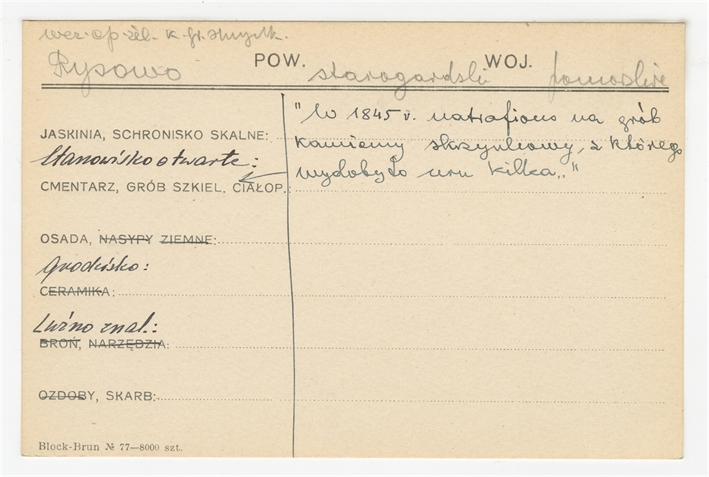 wcz. op. żel. k. gr. skrzynk.
Rysowo POW. starogardski WOJ. pomorskie
JASKINIA, SCHRONISKO SKALNE:
Stanowisko otwarte:
CMENTARZ, GRÓB SZKIEL, CIAŁOP.:
"W 1845 r. natrafiono na grób
kamienny skrzynkowy, z którego
wydobyto urn kilka.."
OSADA, NASYPY ZIEMNE:
Grodzisko:
CERAMIKA:
Luźno znal.:
BROŃ, NARZĘDZIA:
OZDOBY, SKARB:
Block-Brun № 77—8000 szt.